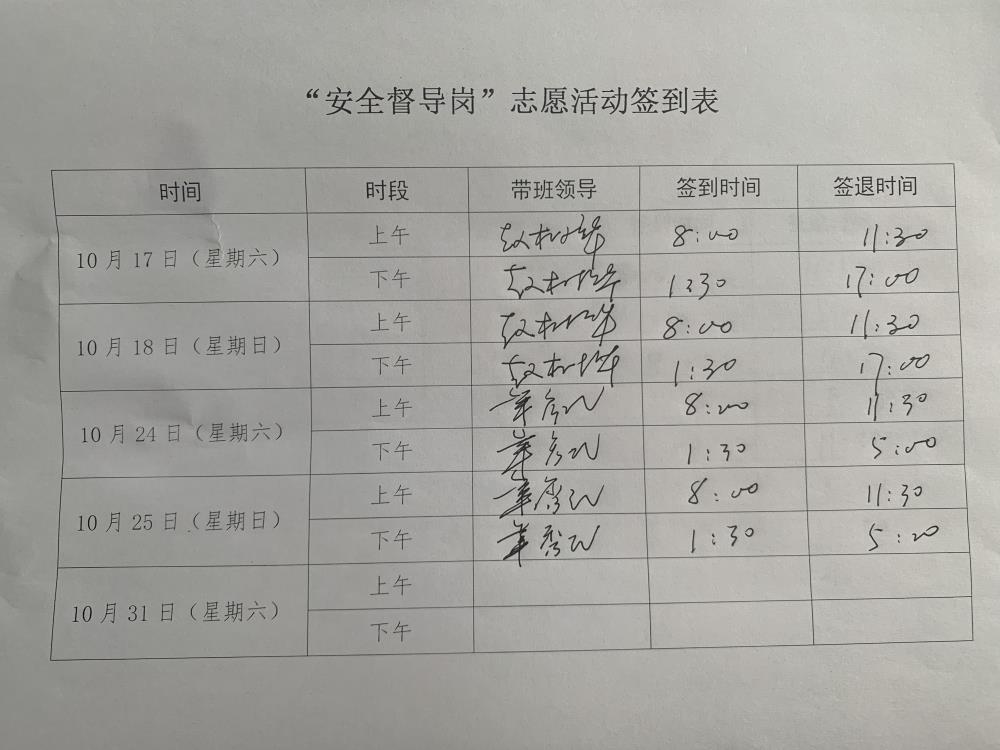 “安全督导岗”志愿活动签到表
时间 时段 带班领导 签到时间 签退时间
10月17日（星期六） 上午 8:00 11:30
下午 1:30 17:00
10月18日（星期日） 上午 8:00 11:30
下午 1:30 17:00
10月24日（星期六） 上午 8:00 11:30
下午 1:30 5:00
10月25日（星期日） 上午 8:00 11:30
下午 1:30 5:20
10月31日（星期六） 上午
下午